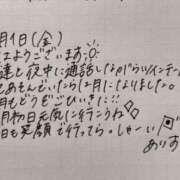 月1日(金)
ようございます
達と夜中に通話しながらツインテー
であそんでいたら12月になりました。
月もどうぞごひいきに!!
月初日元気に行こうね
日も笑顔で行ってら。しゃーい
ありす